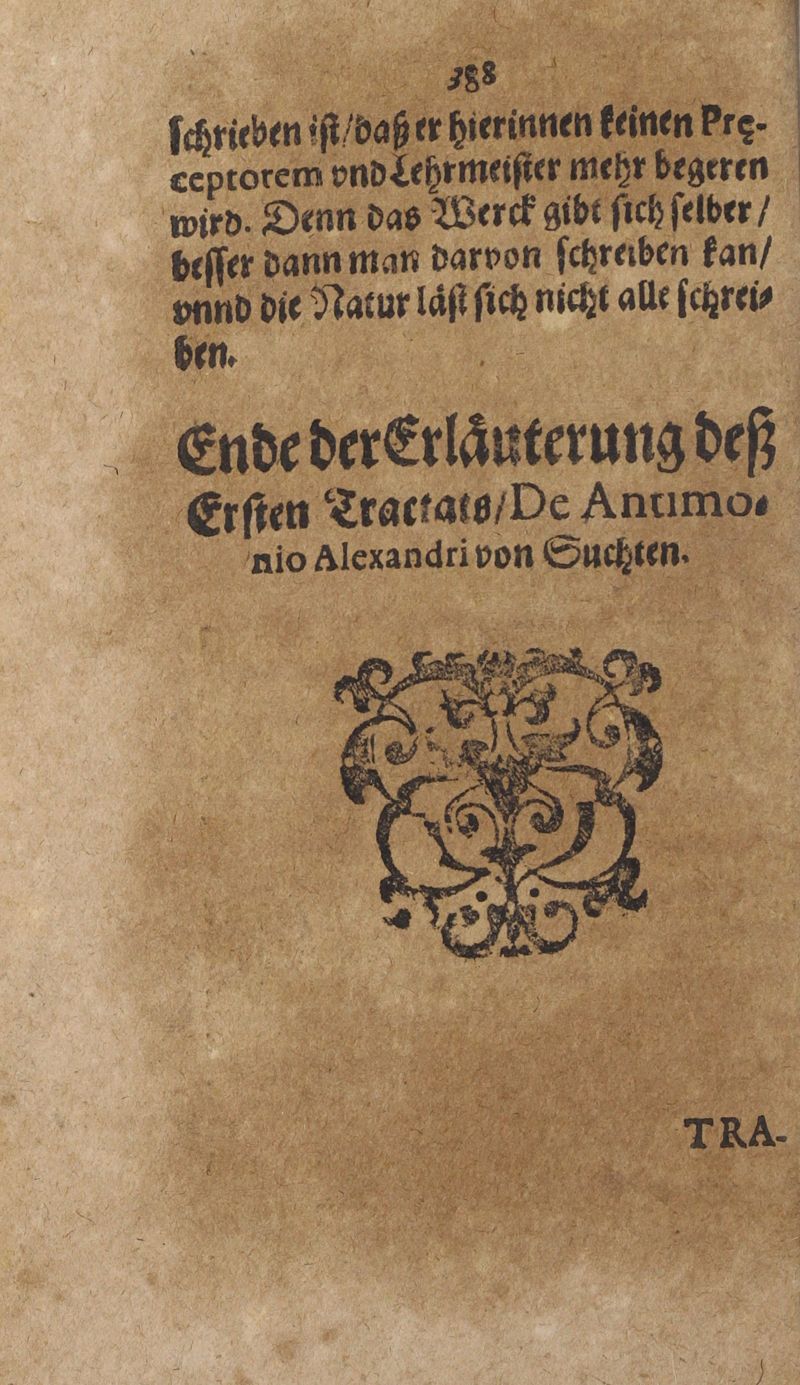 388
ſchrieben iſt/daß er hierinnen keinen Prę-
ceptorem vnd Lehrmeiſter mehr begeren
wird. Denn das Werck gibt ſich ſelber /
beſſer dann man darvon ſchreiben kan/
vnnd die Natur låſt ſich nicht alle ſchrei-
ben.
Ende der Erlåuterung deß
Erſten Tractats/De Antimo-
nio Alexandri von Suchten.
TRA-